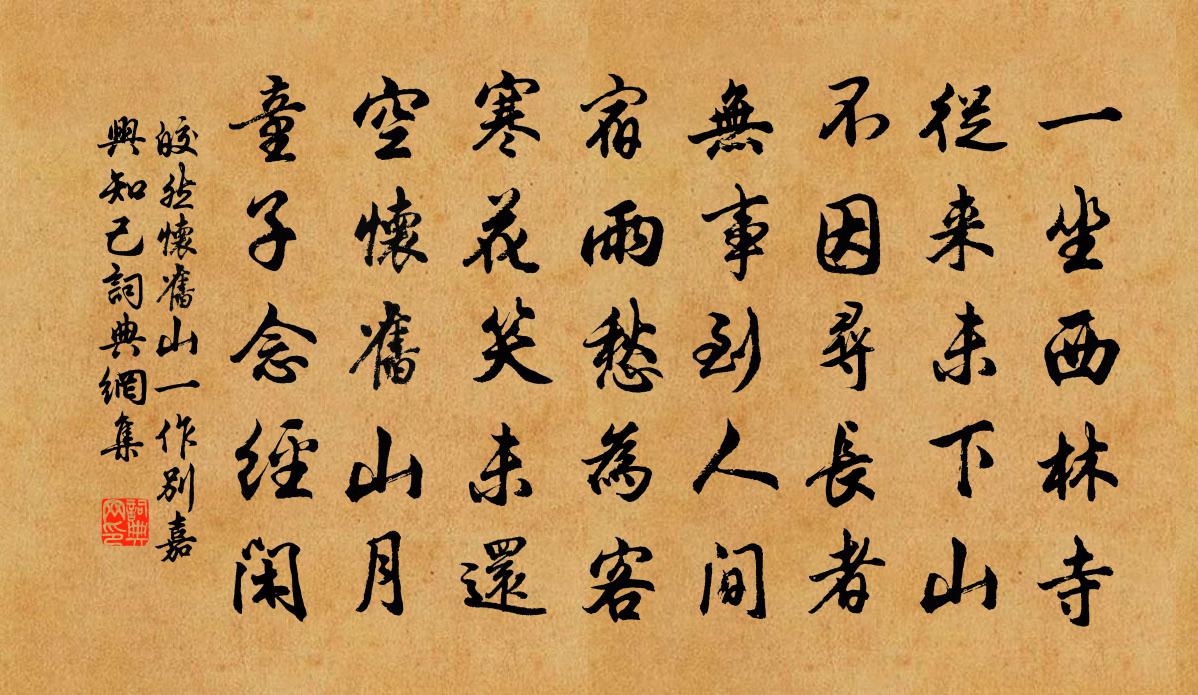 一坐西林寺
從来未下山
不因尋長者
無事到人間
宿雨愁為客
寒花笑未還
空懷舊山月
童子念經閑
皎然懷舊山一作別嘉
興知己詞典網集
詞典
网印